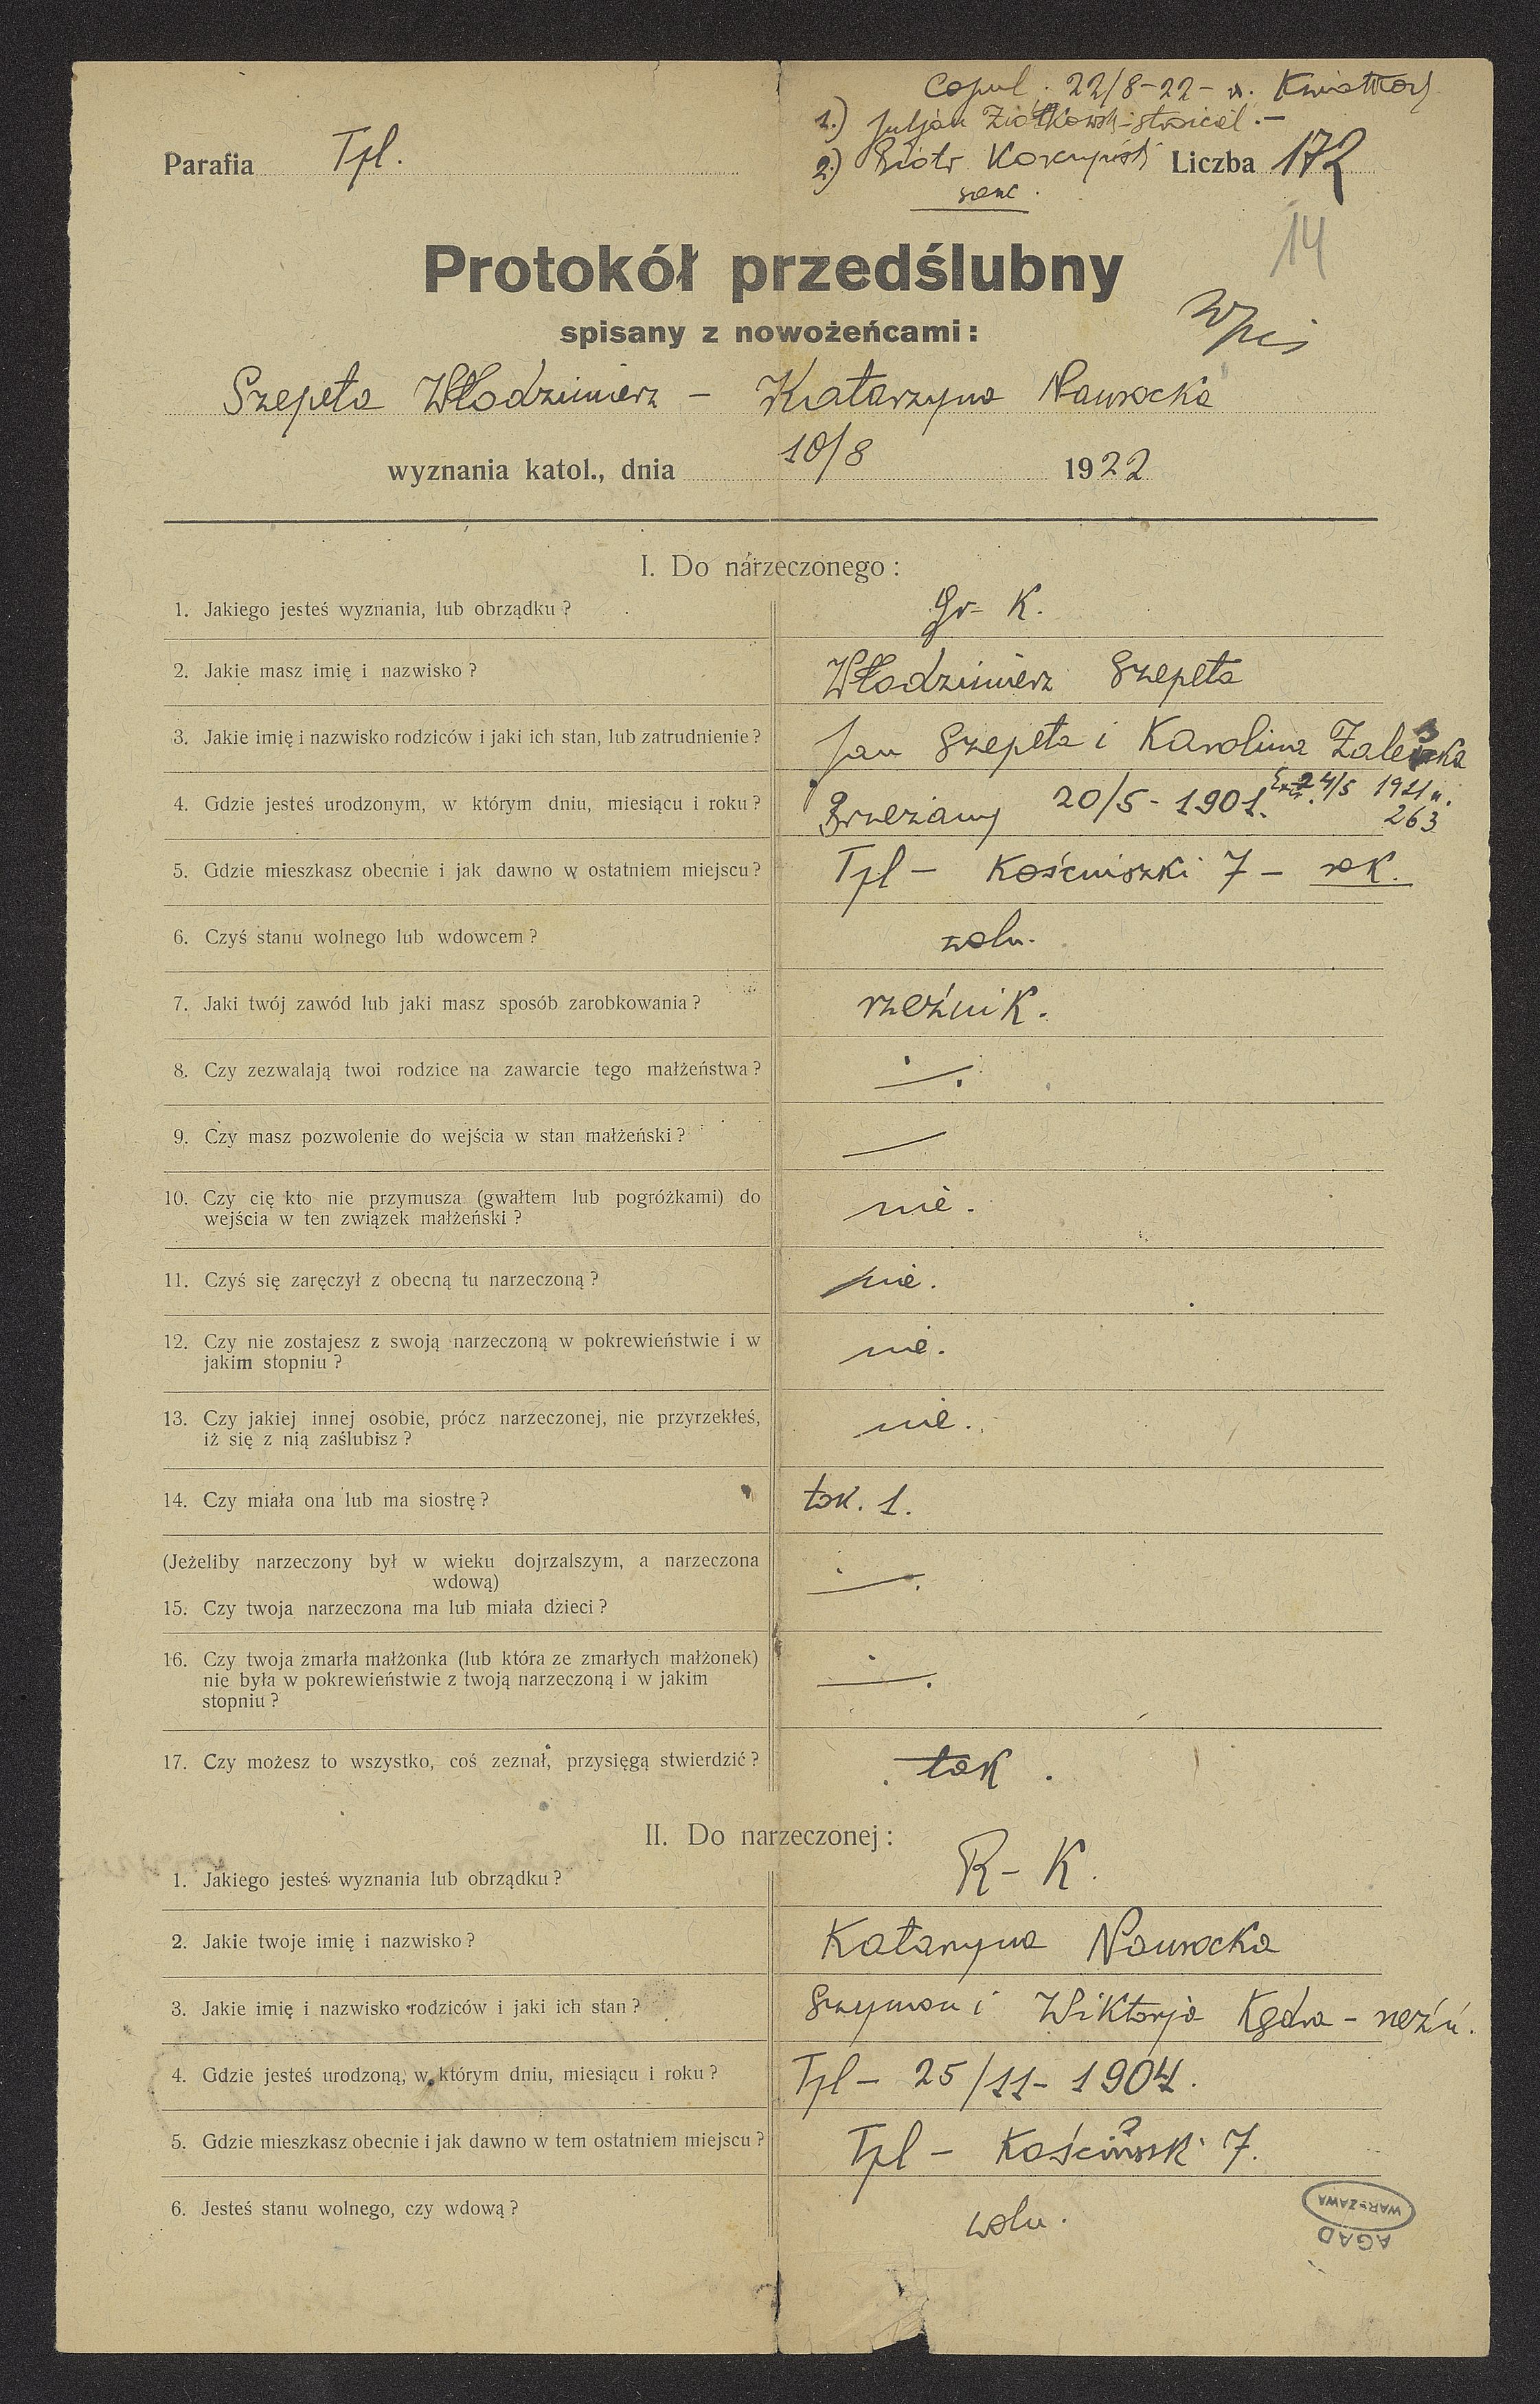 Copul. 22/8-22 - x. Kwiatkow
1.) Juljan Ziółkowski -
Parafia Tpl.
2.) Piotr Liczba 172
14
Protokół przedślubny
Wpis
spisany z nowożeńcami:
Szepeta Włodzimierz - Katarzyna Nawrocka
wyznania katol., dnia 10/8 1922
I. Do narzeczonego:
1. Jakiego jesteś wyznania, lub obrządku? Gr- K.
2. Jakie masz imię i nazwisko? Włodzimierz Szepeta
3. Jakie imię i nazwisko rodziców i jaki ich stan, lub zatrudnienie? Jan Szepeta i Karolina Zaleska
4. Gdzie jesteś urodzonym, w którym dniu, miesiącu i roku? Brzeżany 20/5 - 1901. Extr. 24/5 1921 n.
263
5. Gdzie mieszkasz obecnie i jak dawno w ostatniem miejscu? Tpl - Kościuszki 7 - rok.
6. Czyś stanu wolnego lub wdowcem? woln.
7. Jaki twój zawód lub jaki masz sposób zarobkowania? rzeźnik.
8. Czy zezwalają twoi rodzice na zawarcie tego małżeństwa?
9. Czy masz pozwolenie do wejścia w stan małżeński? —
10. Czy cię kto nie przymusza (gwałtem lub pogróżkami) do
wejścia w ten związek małżeński? nie.
11. Czyś się zaręczył z obecną tu narzeczoną? nie.
12. Czy nie zostajesz z swoją narzeczoną w pokrewieństwie i w
jakim stopniu? nie.
13. Czy jakiej innej osobie, prócz narzeczonej, nie przyrzekłeś,
iż się z nią zaślubisz? nie.
14. Czy miała ona lub ma siostrę? tak. 1.
(Jeżeliby narzeczony był w wieku dojrzalszym, a narzeczona
wdową)
15. Czy twoja narzeczona ma lub miała dzieci?
16. Czy twoja zmarła małżonka (lub która ze zmarłych małżonek)
nie była w pokrewieństwie z twoją narzeczoną i w jakim
stopniu?
17. Czy możesz to wszystko, coś zeznał, przysięgą stwierdzić? tak.
II. Do narzeczonej:
1. Jakiego jesteś wyznania lub obrządku? R- K.
2. Jakie twoje imię i nazwisko? Katarzyna Nawrocka
3. Jakie imię i nazwisko rodziców i jaki ich stan? Szymon i Wiktorja
4. Gdzie jesteś urodzoną, w którym dniu, miesiącu i roku? Tpl - 25/11 - 1904.
5. Gdzie mieszkasz obecnie i jak dawno w tem ostatniem miejscu? Tpl - 7.
6. Jesteś stanu wolnego, czy wdową? woln.
WARSZAWA
AGAD